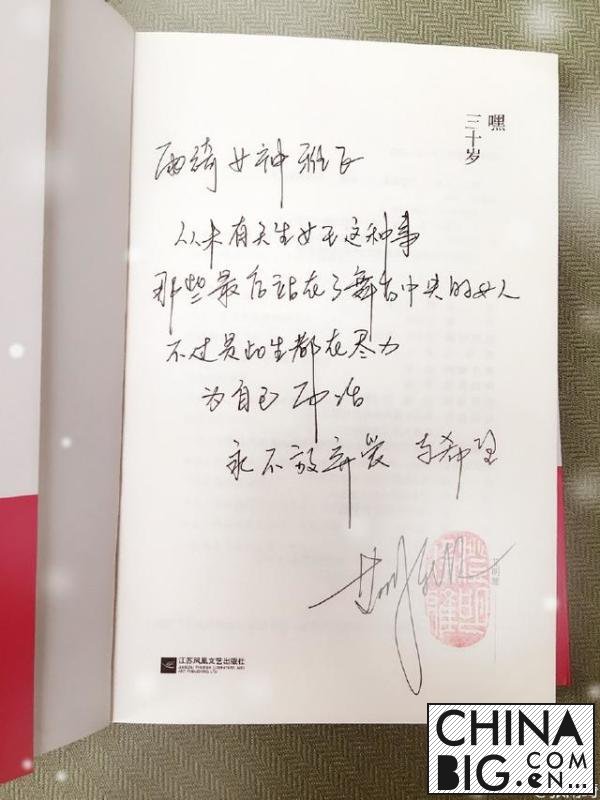 嘿
三十岁
雨绮女神雅正
从未有天生女王这种事
那些最后站在了舞台中央的女人
不过是此生都在尽力
为自己而活
永不放弃爱与希望
江苏凤凰文艺出版社
JIANGSU PHOENIX LITERATURE AND
ART PUBLISHING, LTD
CHINA
.COM
BIG.CN...